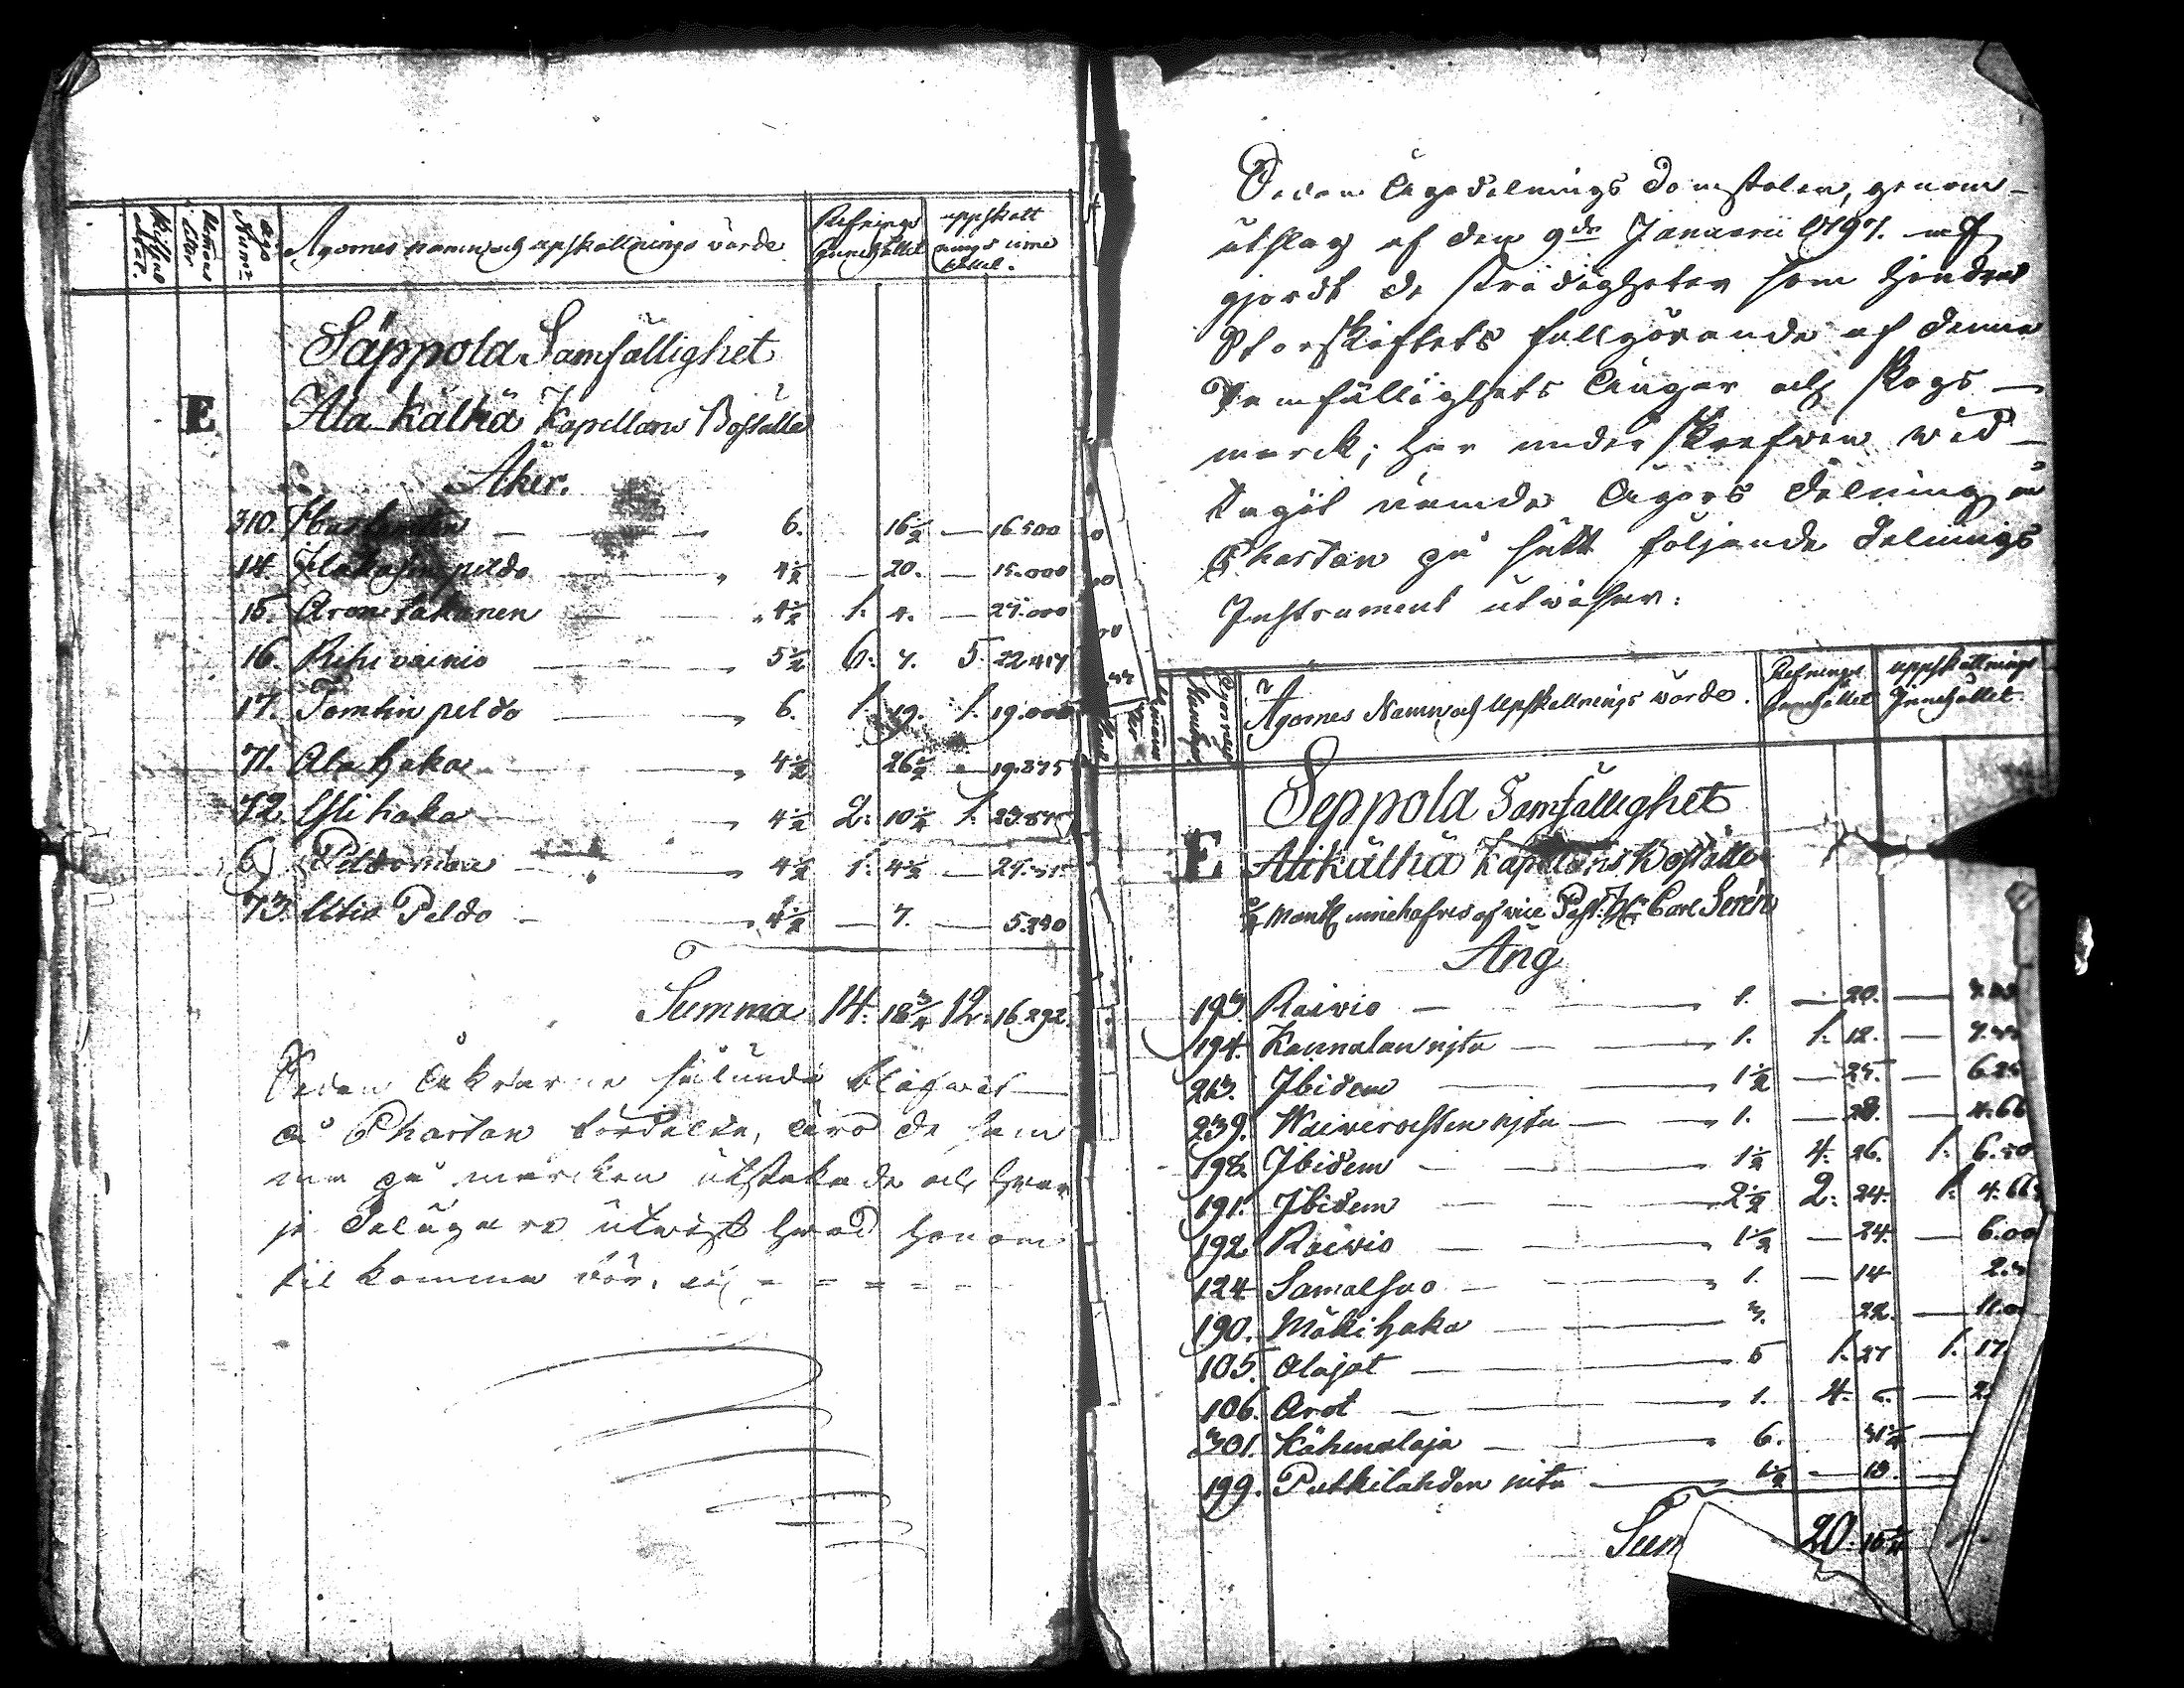 Ägornes namn och upskattnings värde
Refnings innehållet
uppskattnings innehållet.
Säppola Samfällighet
E Ala Kälkä Kapellans Boställe
Åker.
310. 6. 16½ — 16.500
14. peldo 4½ — 20. — 15.000
15. Aron 4½ 1: 4. — 27.000
16. Rihivainio 5½ 6: 7. 5: 22.417
17. Tomtin peldo 6. 1: 19. 1: 19.000
71. Ala haka 4½ 26½ — 19.875
72. Ylihaka 4½ 2: 10½ 1: 23.875
6 4½ 1: 4½ — 27.375
73. Utio Peldo 4½ — 7. — 5.250
Summa 14: 18¾ 12: 16.292
Sedan Åkrarne sålunda blifwit
å Chartan fördelte, äro de sam
ma på marcken utstakade och hwar
je Delägare utwist hwad honom
til komma bör.
Sedan Ägodelnings Domstolen, genom
utslag af den 9de Januarii 1797. af
gjordt de stridigheter som hindrat
Storskiftets fullgörande af denna
Samfällighets Ängar och skogs
marck; har underskrefwen wid
tagit nämde Ägors delning å
Chartan på sätt följande delnings
Instrument utwisar:
Ägornes Namn och Upskattnings wärde.
Refnings innehållet
uppskattnings Innehållet.
Seppola Samfällighet
E Alikälkä Kapellans Boställe
Mantl innehafves af vice Past: Hr Carl Serén
Äng
193. Raivio — 1. — 20. —
194. Kannalan nijtu — 1. 1: 12. —
213. Ibidem 1½ — 25. — 6.25
239. nijtu — 1. — 28. — 4.66
198. Ibidem 1½ 4: 26. 1: 6.50
191. Ibidem 2½ 2: 24. 1: 4.66
192. Raivio 1½ — 24. — 6.00
124 Samalsuo 1. — 14
190. Mäki haka 3. 22. — 11.0
105. Alajot 5 1: 27 1: 17
106. Arot 1. 4: 6. — 2.
301. Kähmalaja 6. 31¼ —
199. Putkilahden nitu 1½ — 13. —
Sum 20: 15¼